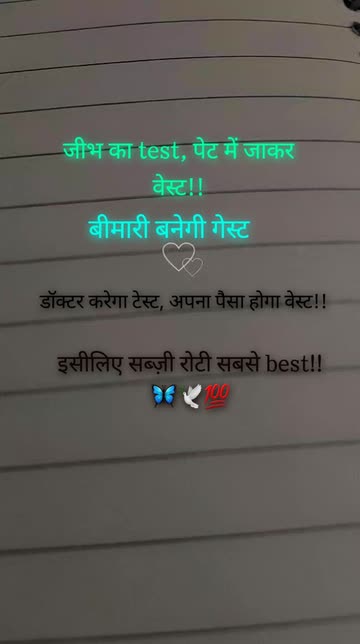 जीभ का test, पेट में जाकर
वेस्ट!!
बीमारी बनेगी गेस्ट
डॉक्टर करेगा टेस्ट, अपना पैसा होगा वेस्ट!!
इसीलिए सब्ज़ी रोटी सबसे best!!
🦋 🕊️💯